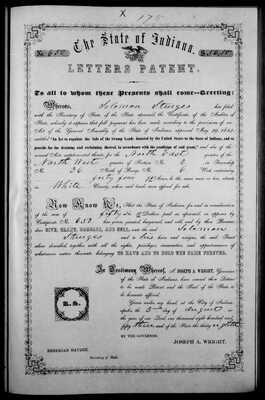 The State of Indiana.
LETTERS PATENT.
To all to whom these Presents shall come—Greeting:
Whereas, Solomon Sturges has filed
with the Secretary of State of the State aforesaid the Certificate of the Auditor of
State, whereby it appears that full payment has been made according to the provisions of an
Act of the General Assembly of the State of Indiana, approved May
entitled "An Act to regulate the Sale of the Swamp Lands donated by the United States to the State of Indiana, and to
provide for the draining and reclaiming thereof, in accordance with the conditions of said grant," and also of the
several Acts supplemental thereto, for the North East quarter of the
North West quarter of Section No. in Township
No. 26 of Range No. 6 West containing
forty acres
in White County, where such lands were offered for sale.
Now Know Ye, That the State of Indiana, for and in consideration
of the sum of fifty Dollars
Certificate No. 650 has given, granted, bargained and sold, and by these Presents
does GIVE, GRANT, BARGAIN, AND SELL, unto the said Solomon
Sturges and to his heirs and assigns, the said Tract
above described, together with all the rights, privileges, immunities and appurtenances of
whatsoever nature thereunto belonging, TO HAVE AND TO HOLD THE SAME FOREVER.
In Testimony Whereof, I, JOSEPH A. WRIGHT, Governor
of the State of Indiana, have caused this Letters
to be made Patent and the Seal of the State to
be hereunto affixed.
Given under my hand, at the City of Indianapolis, the day of August in
the year of our Lord, one thousand eight hundred and
fifty three and of the State the thirty eighth
BY THE GOVERNOR,
JOSEPH A. WRIGHT.
L.S.
NEHEMIAH HAYDEN,
Secretary of State.